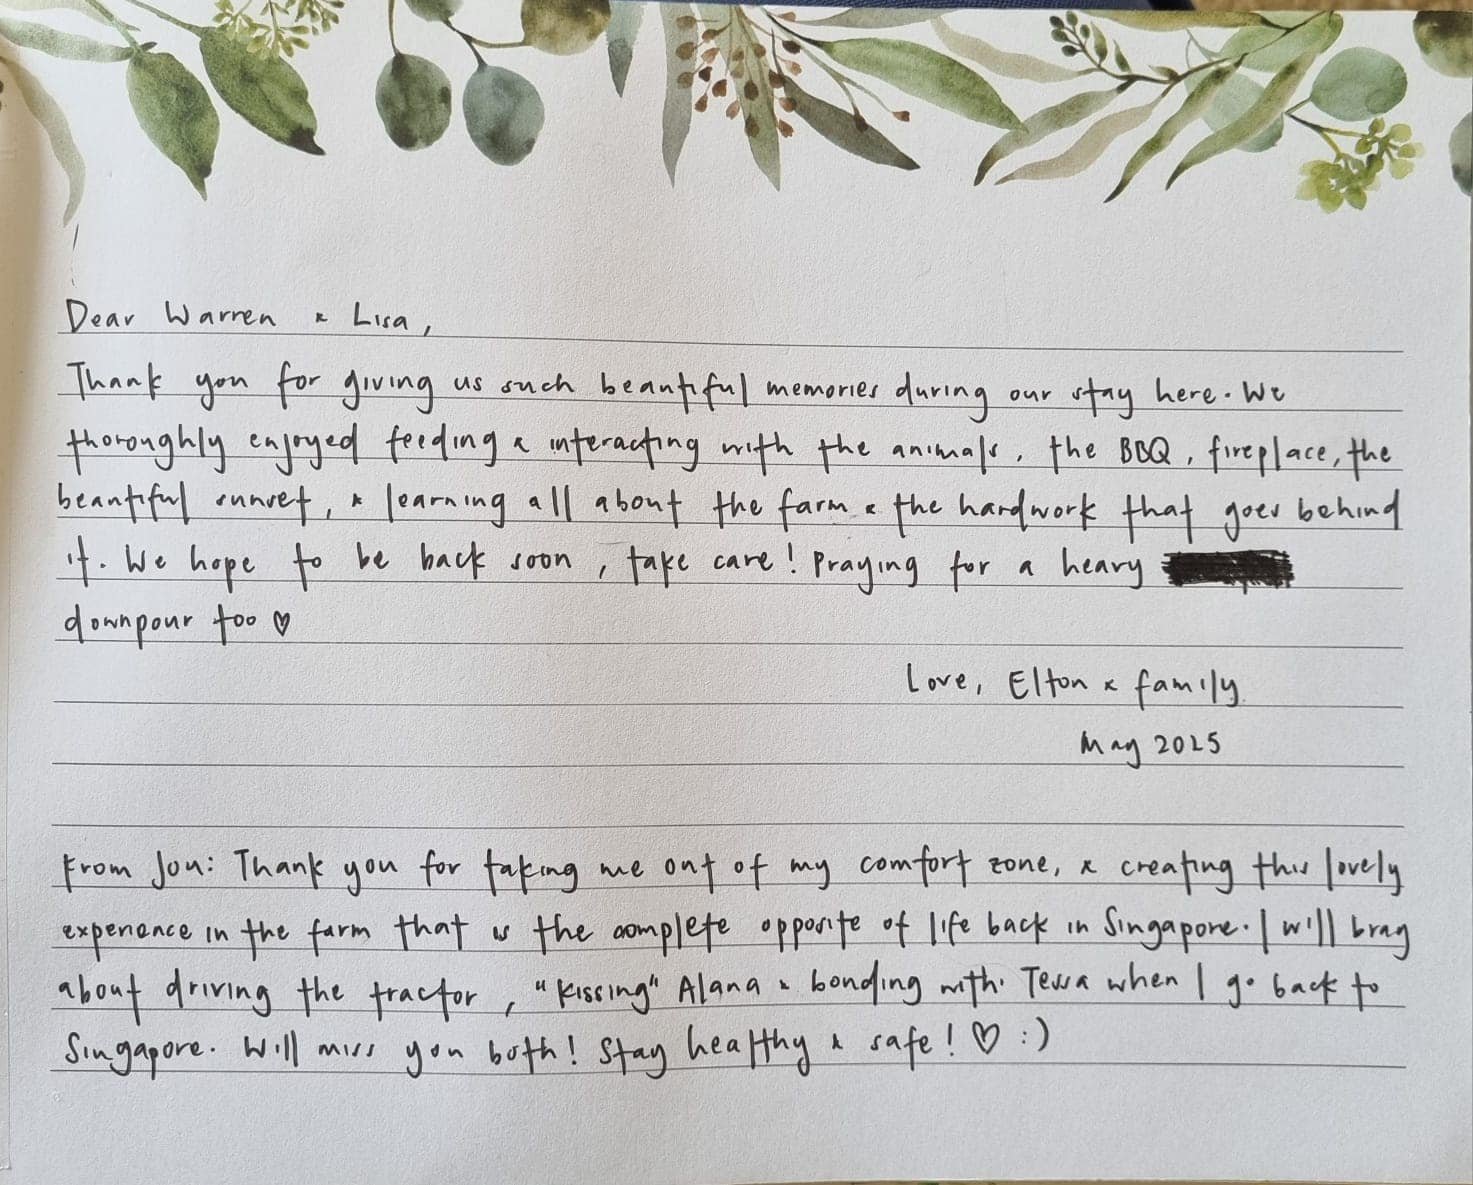 Dear Warren & Lisa,
Thank you for giving us such beautiful memories during our stay here. We
thoroughly enjoyed feeding & interacting with the animals, the BBQ, fireplace, the
beautiful sunset, & learning all about the farm & the hardwork that goes behind
it. We hope to be back soon, take care! Praying for a heavy
downpour too ♡
Love, Elton & family.
May 2025
From Jou: Thank you for taking me out of my comfort zone, & creating this lovely
experience in the farm that is the complete opposite of life back in Singapore. I will brag
about driving the tractor, "kissing" Alana & bonding with Tessa when I go back to
Singapore. Will miss you both! Stay healthy & safe! ♡ :)